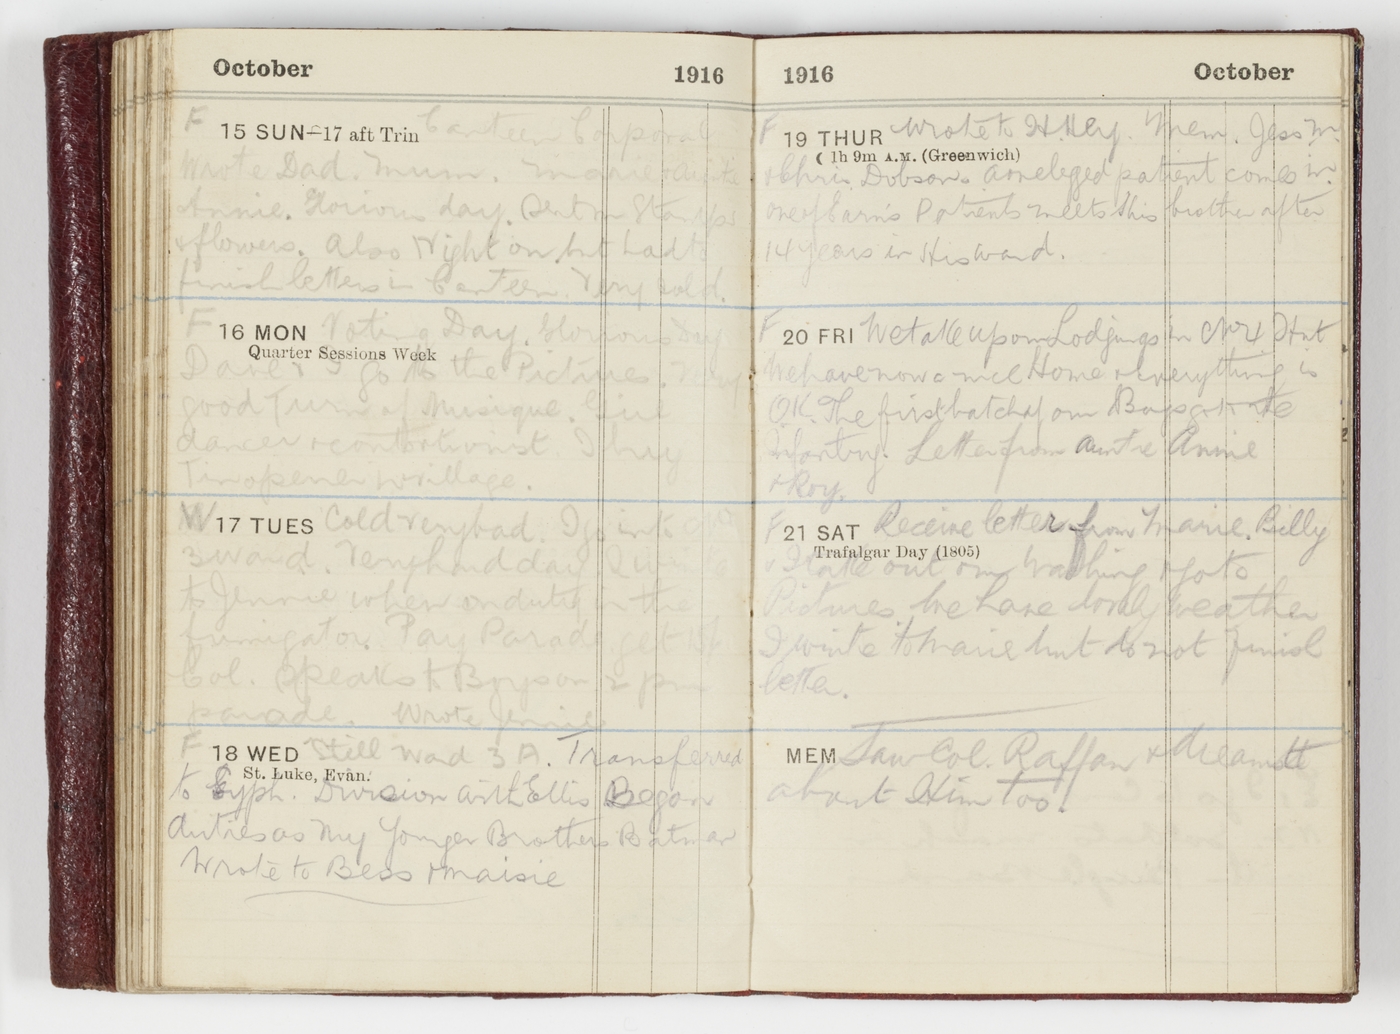 October 1916
F 15 SUN—17 aft Trin Canteen Corporal
Wrote Dad. Mum. Marie & Auntie
Annie. Glorious day. Sent m Stamps
& flowers. Also Night on but had to
finish letters in Canteen. Very cold.
F 16 MON Voting Day. Glorious Day
Quarter Sessions Week
Dave & I go to the Pictures. Very
good Turn of Musique. Give
dancer & contortionist I buy
Tinopener in village.
W 17 TUES Cold very bad. I go into
3 ward. Very hard day
to Jennie when on duty in the
fumigator. Pay Parade get
Col. Speaks to Boys on 2 pm
parade. Wrote Jennie
F 18 WED Still Ward 3 A. Transferred
St. Luke, Evan.
to Syph. Division with Ellis Began
duties as My Yonger Brothers Batman
Wrote to Bess & Maisie
1916 October
F 19 THUR Wrote to H. Mem. Jess M.
☾ 1h 9m A.M. (Greenwich)
& Chris Dobson. Armeleged patient comes in.
one of Earn's Patients meets His brother after
14 years in His ward.
F 20 FRI We take up our Lodgings in No 4 Hut
We have now a nice Home & everything is
O.K. The first batch of our Boys got to the
Infantry. Letter from Auntie Annie
& Roy.
F 21 SAT Receive letter from Marie. Billy
Trafalgar Day (1805)
& I take out our washing & go to
Pictures. We have lovely weather
I write to Marie but do not finish
letter.
MEM Saw Col. Raffan & dreamdt
about Him Too.